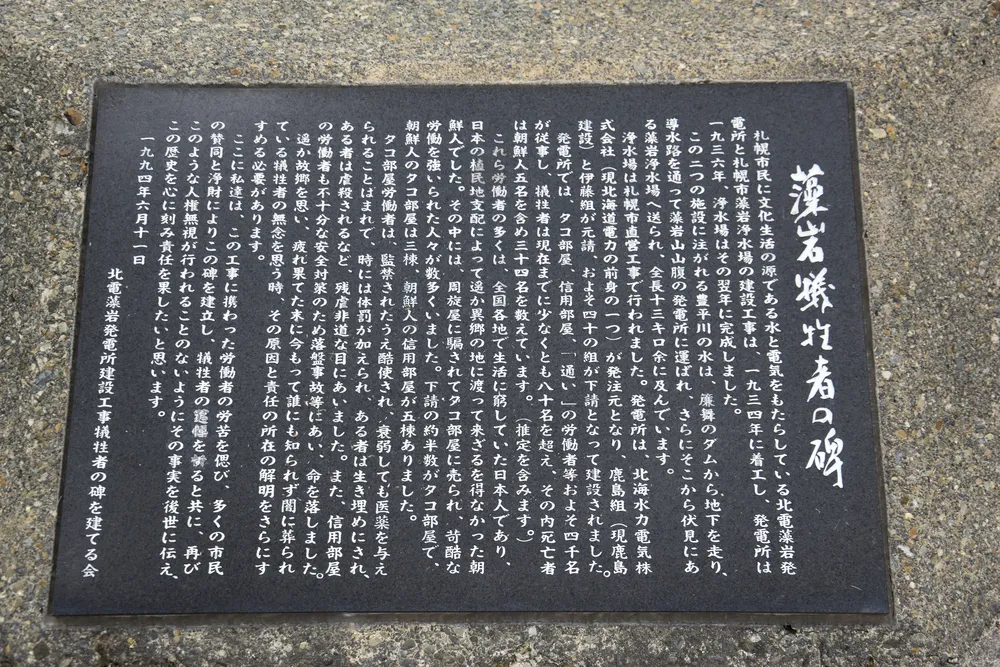 藻岩犠牲者の碑
札幌市民に文化生活の源である水と電気をもたらしている北電藻岩発
電所と札幌市藻岩浄水場の建設工事は、一九三四年に着工し、発電所は
一九三六年、浄水場はその翌年に完成しました。
この二つの施設に注がれる豊平川の水は、簾舞のダムから地下を走り、
導水路を通って藻岩山山腹の発電所に運ばれ、さらにそこから伏見にあ
る藻岩浄水場へ送られ、全長十三キロ余に及んでいます。
浄水場は札幌市直営工事で行われました。発電所は、北海水力電気株
式会社(現北海道電力の前身の一つ)が発注元となり、鹿島組(現鹿島
建設)と伊藤組が元請、およそ四十の組が下請となって建設されました。
発電所では、タコ部屋、信用部屋、「通い」の労働者等およそ四千名
が従事し、犠牲者は現在までに少なくとも八十名を超え、その内死亡者
は朝鮮人五名を含め三十四名を数えています。(推定を含みます。)
これら労働者の多くは、全国各地で生活に窮していた日本人であり、
日本の植民地支配によって遥か異郷の地に渡って来ざるを得なかった朝
鮮人でした。その中には、周旋屋に騙されてタコ部屋に売られ、苛酷な
労働を強いられた人々が数多くいました。下請の約半数がタコ部屋で、
朝鮮人のタコ部屋は三棟、朝鮮人の信用部屋が五棟ありました。
タコ部屋労働者は、監禁されたうえ酷使され、衰弱しても医薬を与え
られることはまれで、時には体罰が加えられ、ある者は生き埋めにされ、
ある者は虐殺されるなど、残虐非道な目にあいました。また、信用部屋
の労働者も不十分な安全対策のため落盤事故等にあい、命を落しました。
遥か故郷を思い、疲れ果てた末に今もって誰にも知られず闇に葬られ
ている犠牲者の無念を思う時、その原因と責任の所在の解明をさらにす
すめる必要があります。
ここに私達は、この工事に携わった労働者の労苦を偲び、多くの市民
の賛同と浄財によりこの碑を建立し、犠牲者の追悼をすると共に、再び
このような人権無視が行われることのないようにその事実を後世に伝え、
この歴史を心に刻み責任を果したいと思います。
一九九四年六月十一日
北電藻岩発電所建設工事犠牲者の碑を建てる会